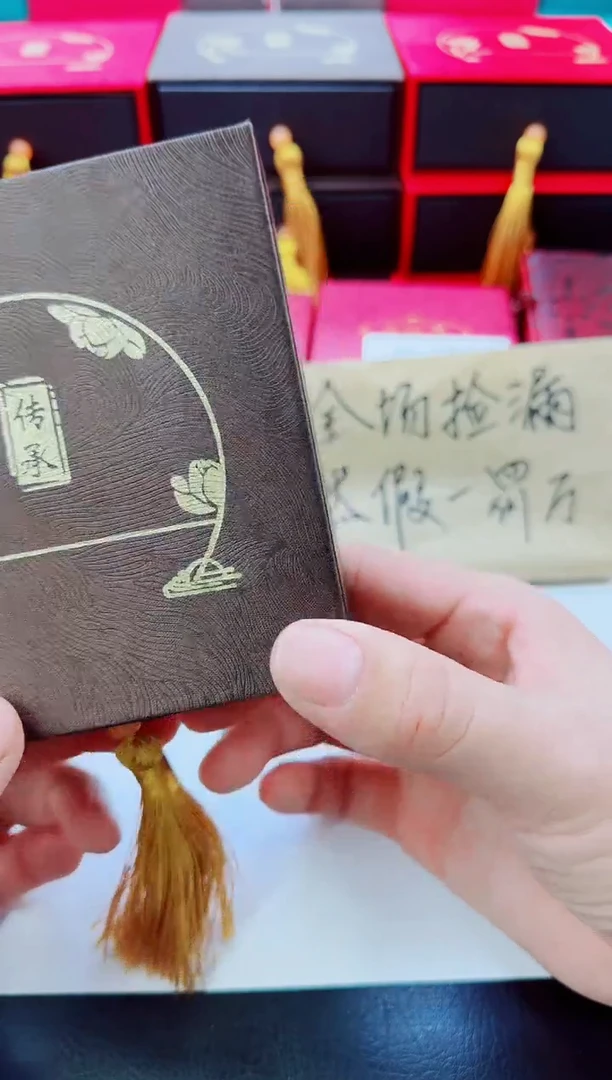 传承
全场捡漏
假一罚万